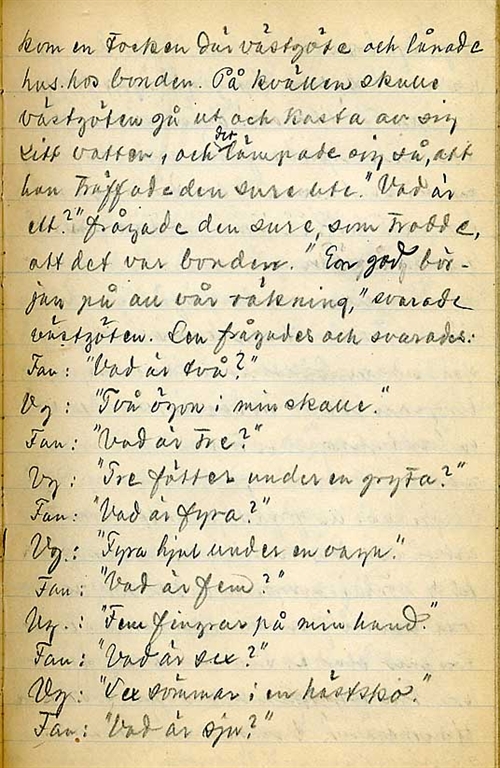 kom en tocken där västgöte och lånade
hus hos bonden. På kvällen skulle
västgöten gå ut och kasta av sig
sitt vatten, och det lämpade sig så, att
han träffade den sure ute. "Vad är
ett?" frågade den sure, som trodde,
att det var bonden. "En god bör-
jan på all vår räkning," svarade
västgöten. Sen frågades och svarades:
Fan: "Vad är två?"
Vg: "Två ögon i min skalle."
Fan: "Vad är tre?"
Vg: "Tre fötter under en gryta?"
Fan: "Vad är fyra?"
Vg.: "Fyra hjul under en vagn."
Fan: "Vad är fem?"
Vg.: "Fem fingrar på min hand."
Fan: "Vad är sex?"
Vg: "Sex sömmar i en hästsko."
Fan: "Vad är sju?"